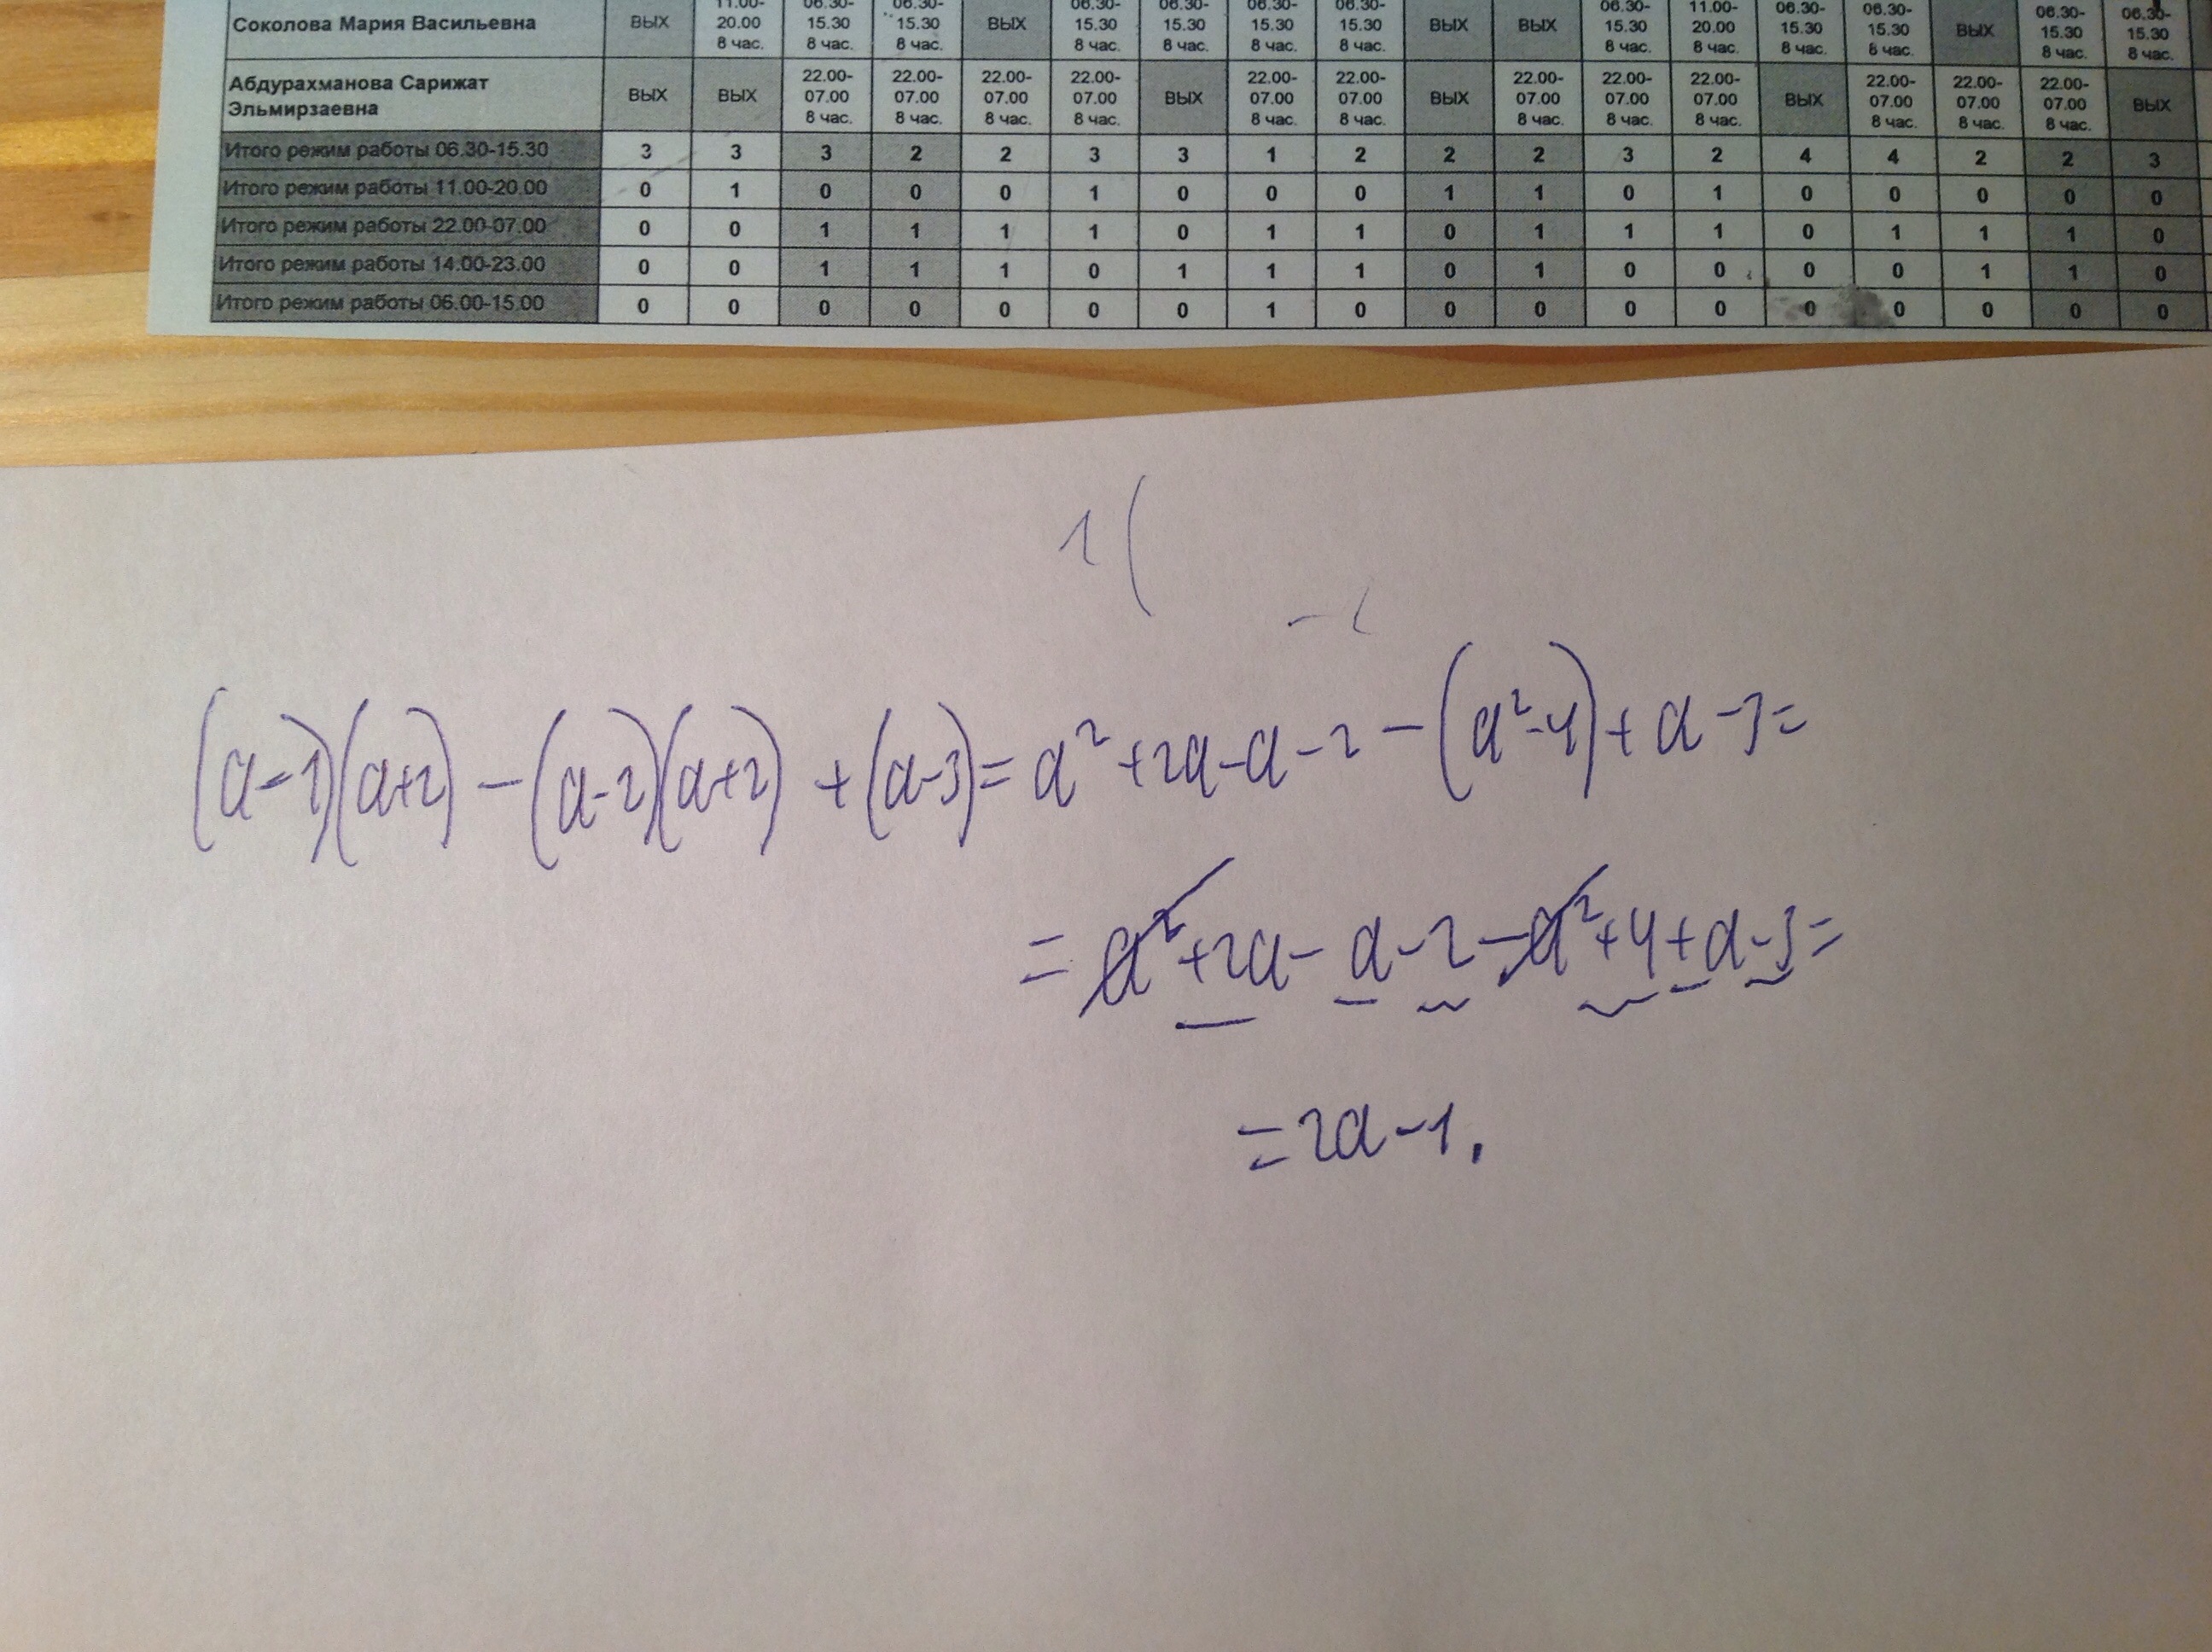 Соколова Мария Васильевна ВЫХ 11.00-20.00 8 час. 06.30-15.30 8 час. 06.30-15.30 8 час. ВЫХ 06.30-15.30 8 час. 06.30-15.30 8 час. 06.30-15.30 8 час. 06.30-15.30 8 час. ВЫХ ВЫХ 06.30-15.30 8 час. 11.00-20.00 8 час. 06.30-15.30 8 час. 06.30-15.30 8 час. ВЫХ 06.30-15.30 8 час. 06.30-15.30 8 час.
Абдурахманова Сарижат Эльмирзаевна ВЫХ ВЫХ 22.00-07.00 8 час. 22.00-07.00 8 час. 22.00-07.00 8 час. 22.00-07.00 8 час. ВЫХ 22.00-07.00 8 час. 22.00-07.00 8 час. ВЫХ 22.00-07.00 8 час. 22.00-07.00 8 час. 22.00-07.00 8 час. ВЫХ 22.00-07.00 8 час. 22.00-07.00 8 час. 22.00-07.00 8 час. ВЫХ
Итого режим работы 06.30-15.30 3 3 3 2 2 3 3 1 2 2 2 3 2 4 4 2 2 3
Итого режим работы 11.00-20.00 0 1 0 0 0 1 0 0 0 1 1 0 1 0 0 0 0 0
Итого режим работы 22.00-07.00 0 0 1 1 1 1 0 1 1 0 1 1 1 0 1 1 1 0
Итого режим работы 14.00-23.00 0 0 1 1 1 0 1 1 1 0 1 0 0 0 0 1 1 0
Итого режим работы 06.00-15.00 0 0 0 0 0 0 0 1 0 0 0 0 0 0 0 0 0 0
1(
(a-1)(a+2)-(a-2)(a+2)+(a-3)=a²+2a-a-2-(a²-4)+a-3=
=a²+2a-a-2-a²+4+a-3=
=2a-1.